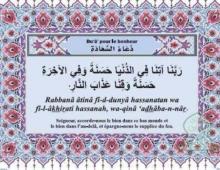 Du'â' pour le bonheur
دُعَاءُ السَّعَادَةِ
رَبَّنَا آتِنَا فِي الدُّنْيَا حَسَنَةً وَفِي الآخِرَةِ
حَسَنَةً وَقِنَا عَذَابَ النَّارِ.
Rabbanâ âtinâ fi-d-dunyâ hassanatan wa
fi-l-âkhirati hassanah, wa-qinâ ‘adhâba-n-nâr.
Seigneur, accorde-nous le bien dans ce bas monde et
le bien dans l'au-delà, et épargne-nous le supplice du feu.